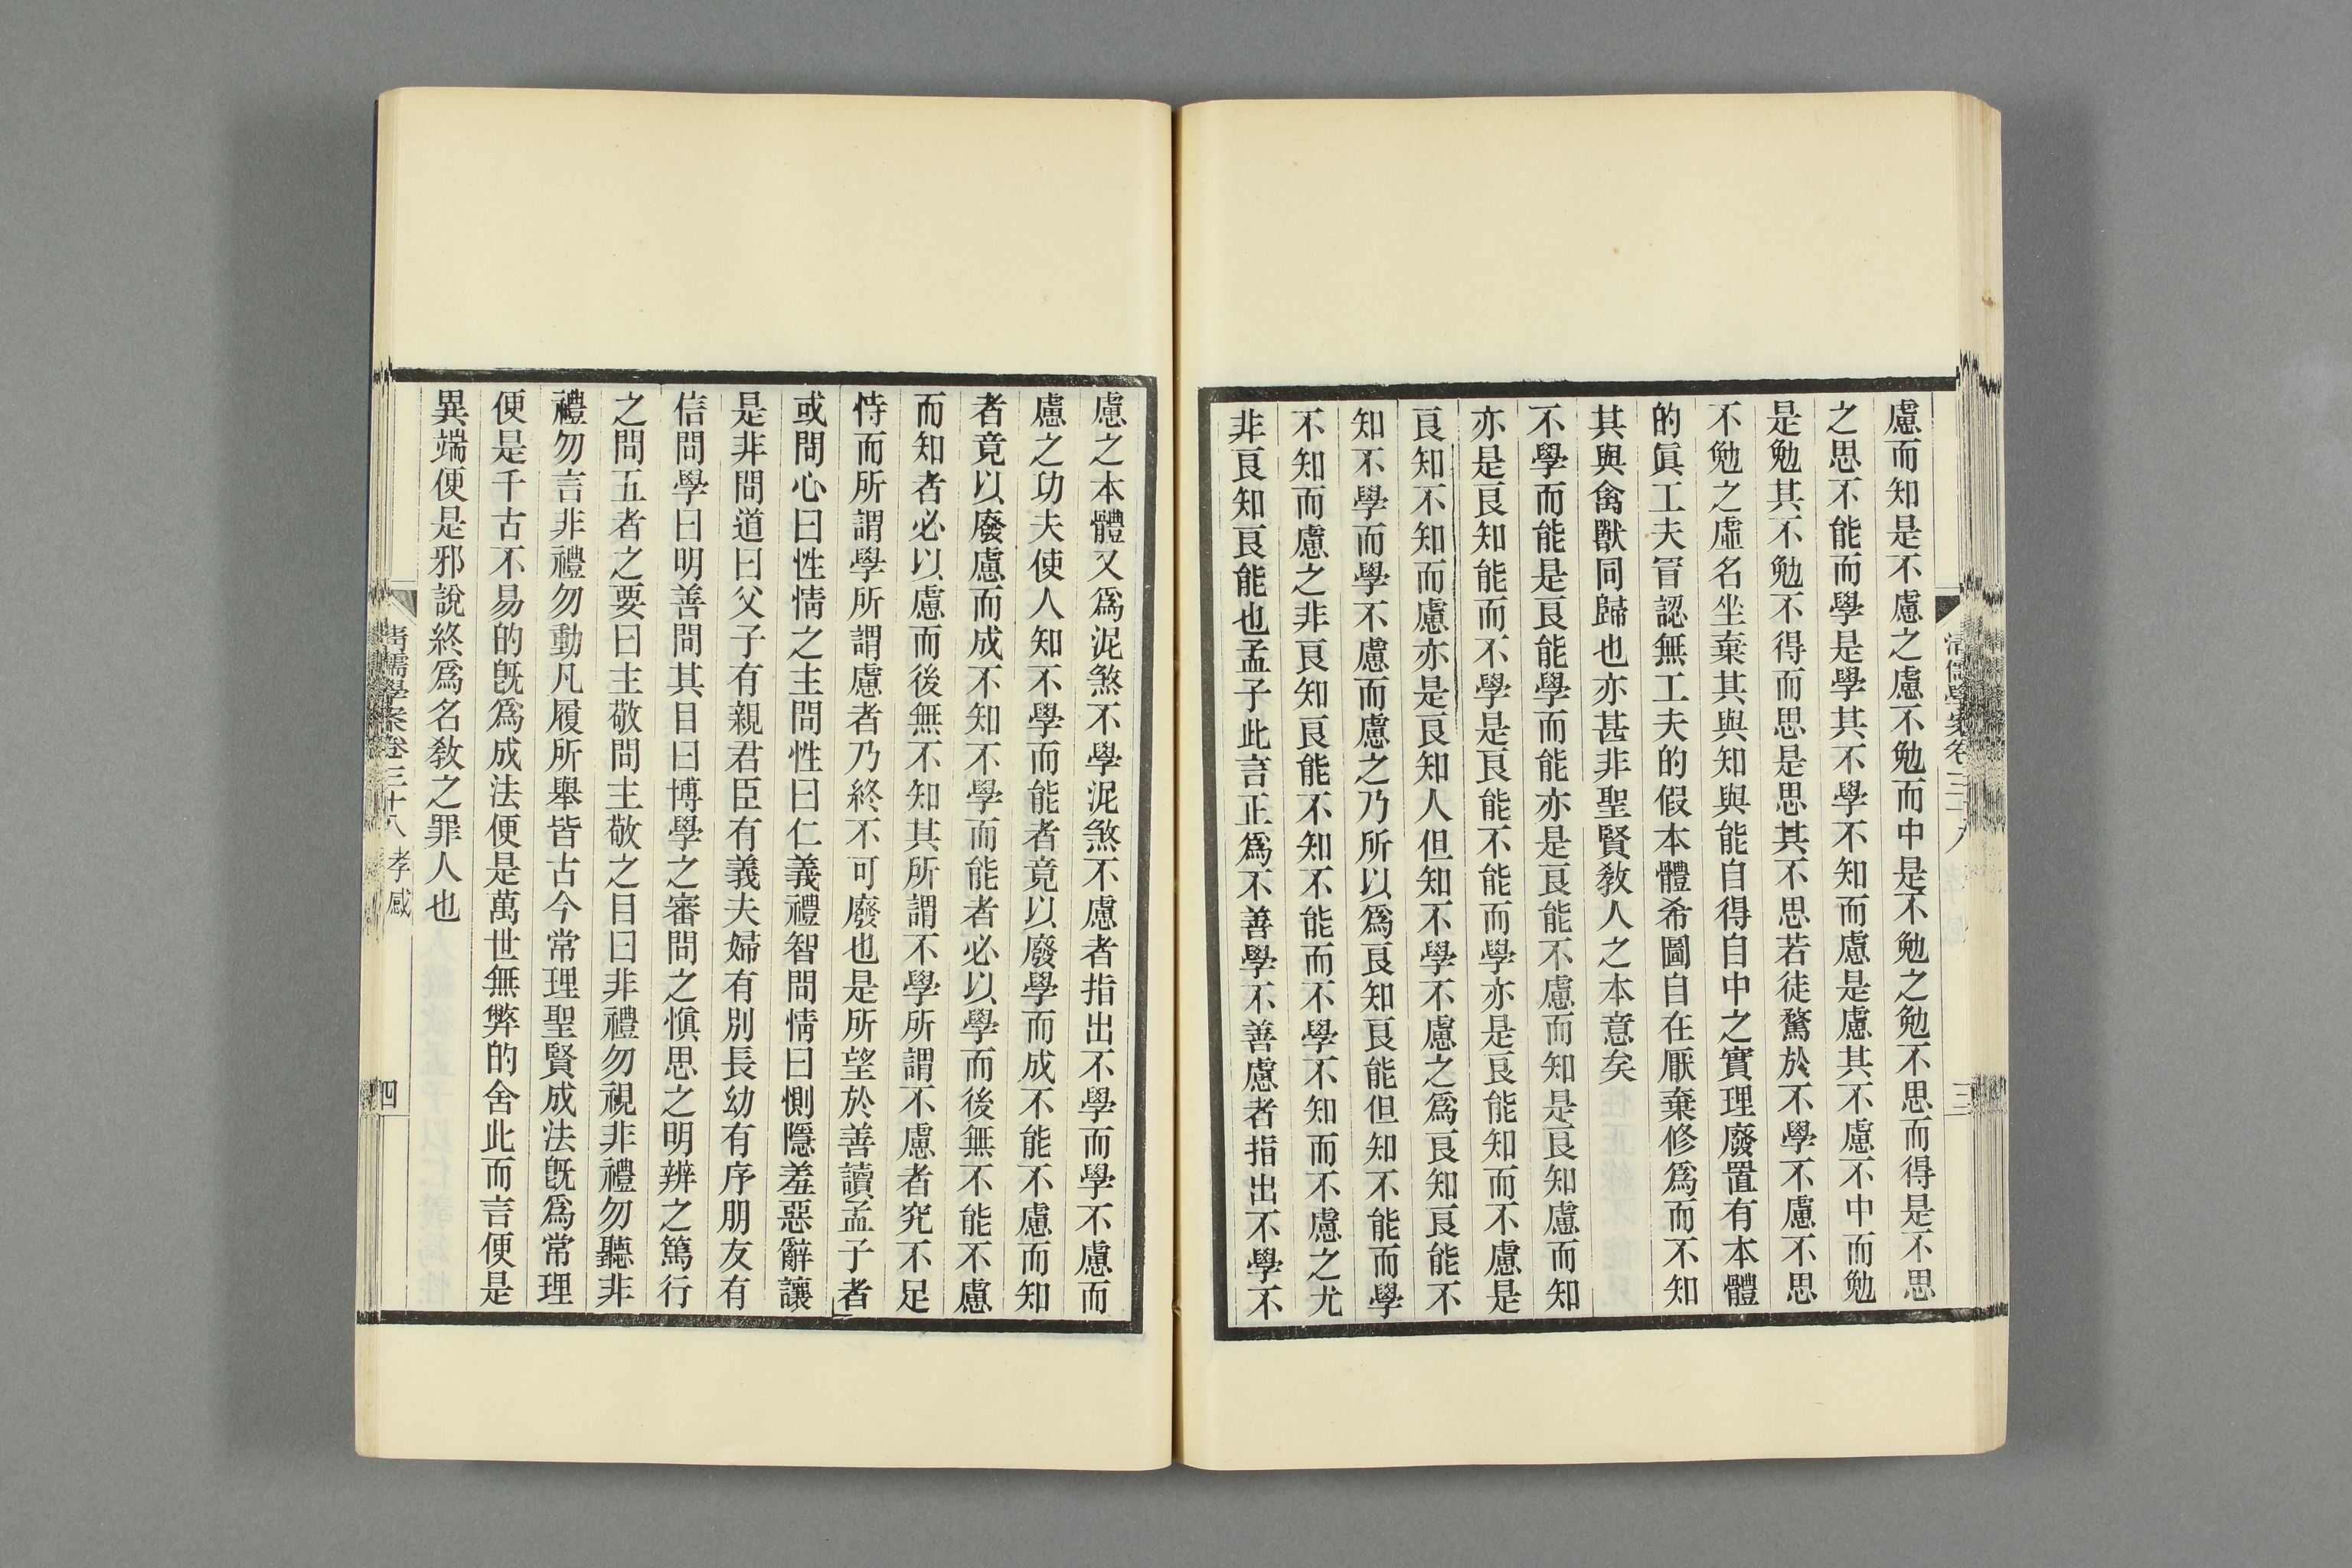 慮而知是不慮之慮不勉而中是不勉之勉不思而得是不思
之思不能而學是學其不學不知而慮是慮其不慮不中而勉
是勉其不勉不得而思是思其不思若徒騖於不學不慮不思
不勉之虛名坐棄其與知與能自得自中之實理廢置有本體
的眞工夫冒認無工夫的假本體希圖自在厭棄修爲而不知
其與禽獸同歸也亦甚非聖賢敎人之本意矣
不學而能是良能學而能亦是良能不慮而知是良知慮而知
亦是良知能而不學是良能不能而學亦是良能知而不慮是
良知不知而慮亦是良知人但知不學不慮之爲良知良能不
知不學而學不慮而慮之乃所以爲良知良能但知不能而學
不知而慮之非良知良能不知不能而不學不知而不慮之尤
非良知良能也孟子此言正爲不善學不善慮者指出不學不
清儒學案卷三十八
三
慮之本體又爲泥煞不學泥煞不慮者指出不學而學不慮而
慮之功夫使人知不學而能者竟以廢學而成不能不慮而知
者竟以廢慮而成不知不學而能者必以學而後無不能不慮
而知者必以慮而後無不知其所謂不學所謂不慮者究不足
恃而所謂學所謂慮者乃終不可廢也是所望於善讀孟子者
或問心曰性情之主問性曰仁義禮智問情曰惻隱羞惡辭讓
是非問道曰父子有親君臣有義夫婦有別長幼有序朋友有
信問學曰明善問其目曰博學之審問之愼思之明辨之篤行
之問五者之要曰主敬問主敬之目曰非禮勿視非禮勿聽非
禮勿言非禮勿動凡履所舉皆古今常理聖賢成法旣爲常理
便是千古不易的旣爲成法便是萬世無弊的舍此而言便是
異端便是邪說終爲名敎之罪人也
清儒學案卷三十八 孝感
四